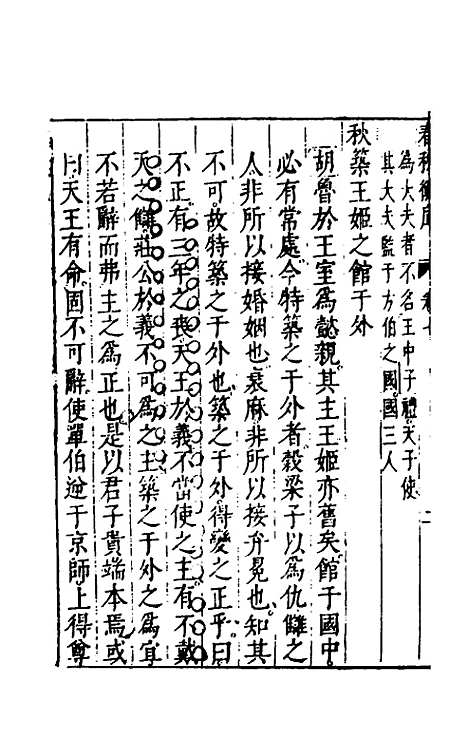 爲大夫者不名王中子禮天子使
其大夫監于方伯之國國三人
秋築王姬之館于外
胡魯於王室爲懿親其主王姬亦舊矣館于國中
必有常處今特築之于外者穀梁子以爲仇讎之
人非所以接婚姻也衰麻非所以接弁冕也知其
不可故特築之于外也築之于外得變之正乎曰
不正有三年之喪天王於義不當使之主有不戴
天之讎莊公於義不可爲之主築之于外之爲宜
不若辭而弗主之爲正也是以君子貴端本焉或
曰天王有命固不可辭使單伯逆于京師上得尊